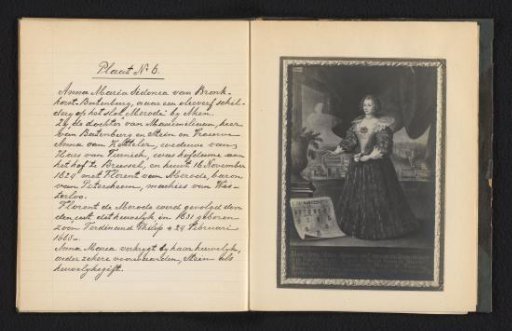 Plaat No 6.
Anna Maria Sidonia van Bronk-
horst-Batenburg, naar een olieverf schil-
derij op het slot "Merode" by Aken.
Zy, de dochter van Maximiliaan, heer
van Batenburg en Stein en Vrouwe
Anna van
Hans van hofdame aan
het hof te Brussel, en huwt 16 November
1629 met Florent van Merode, baron
van Petersheim, markies van Wes-
terloo.
Florent de Merode werd gevolgd door
den uit dit huwelijk in 1631 geboren
zoon Ferdinand Philip + 24 Februari
1663.
Anna Maria verkrygt by haar huwelyk,
onder zekere voorwaarden, Stein als
huwelyksgift.